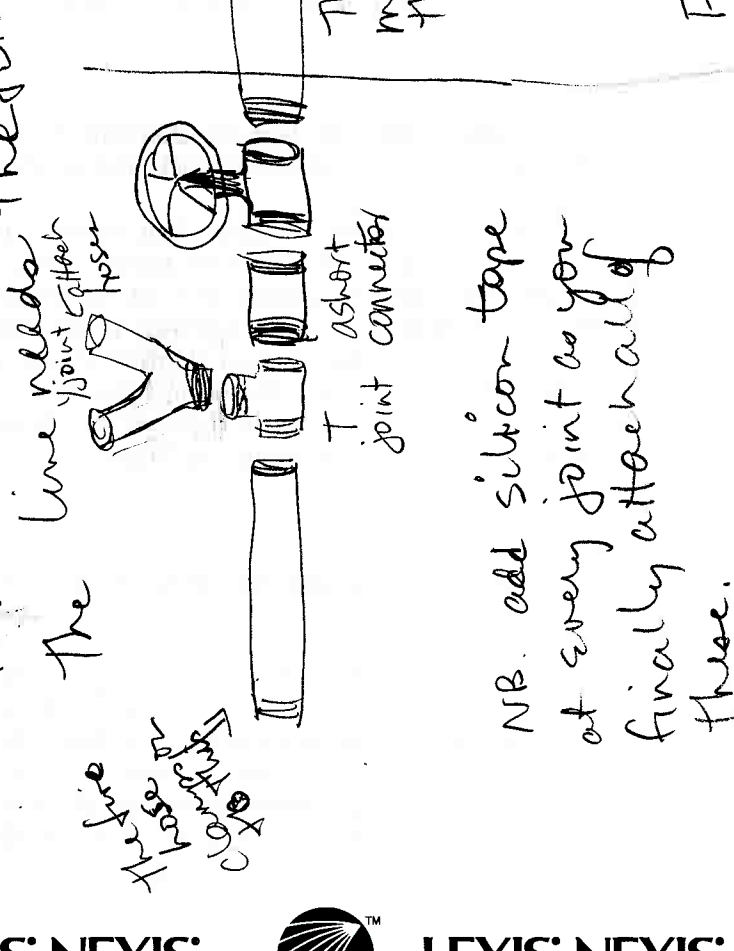 The line needs
y joint attach
hoses
T
joint
a short
connector
The fire
hose
NB. add silicon tape
at every joint as you
finally attach all of
these.
LEXIS·NEXIS·
TM
LEXIS·NEXIS·